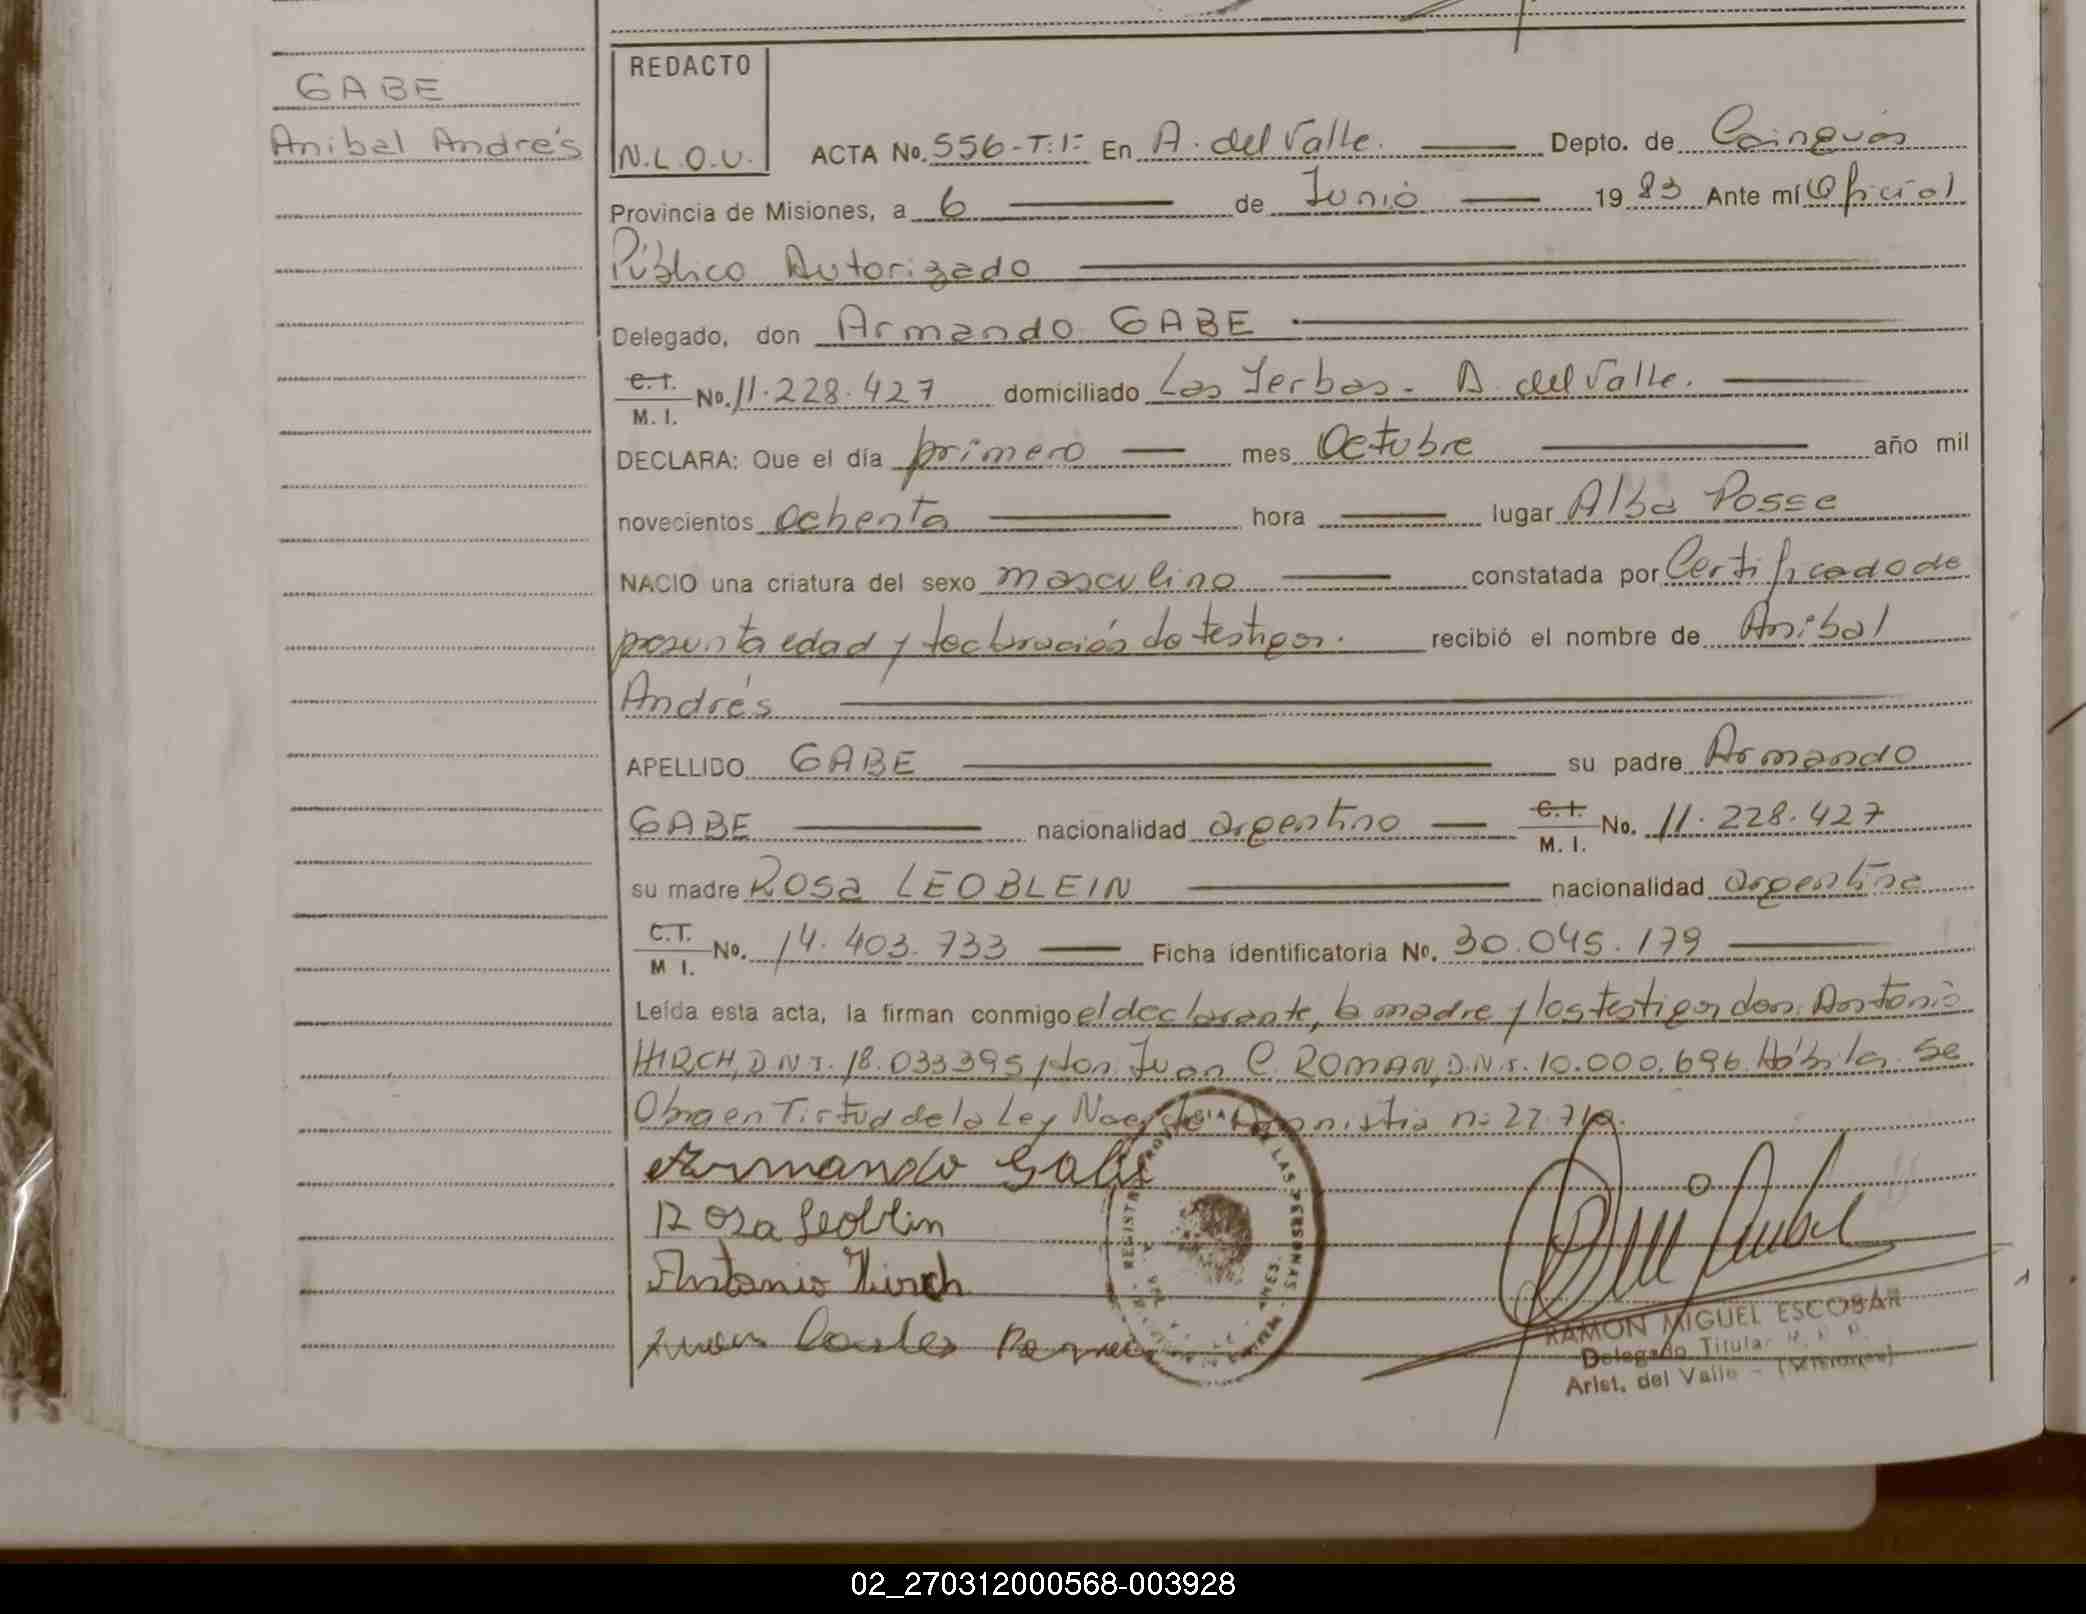 GABE
Anibal Andrés
REDACTO
N.L.O.U.
ACTA No. 556-T:1º En A. del Valle. Depto. de Cainguás
Provincia de Misiones, a 6 de Junio 1983 Ante mí Oficial
Público Autorizado
Delegado, don Armando GABE
C.I. M.I. No. 11.228.427 domiciliado Las Yerbas - A. del Valle.
DECLARA: Que el día primero mes Octubre año mil
novecientos ochenta hora lugar Alba Posse
NACIO una criatura del sexo masculino constatada por Certificado de
presunta edad y declaración de testigos. recibió el nombre de Anibal
Andrés
APELLIDO GABE su padre Armando
GABE nacionalidad argentino C.I. M.I. No. 11.228.427
su madre Rosa LEOBLEIN nacionalidad argentina
C.T. M I. No. 14.403.733 Ficha identificatoria No. 30.045.179
Leída esta acta, la firman conmigo el declarante, la madre y los testigos don Antonio
HIRCH, D.N.I. 18.033395 y don Juan C. ROMAN, D.N.I. 10.000.696. Hábiles. Se
Obra en Virtud de la Ley Nac. de Amnistia nº 22.710.
Armando Gabe
Rosa Leoblin
Antonio Hirch
Juan Carlos Roman
RAMON MIGUEL ESCOBAR
Delegado Titular
Arist. del Valle - (Misiones)
02_270312000568-003928